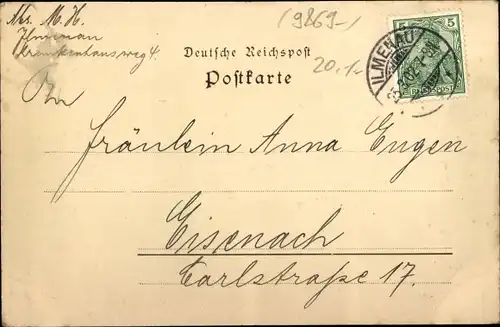 Abs. M. H.
Ilmenau
Krankenhausweg 4.
(9869-)
Deutsche Reichspost
Postkarte
20.1-
5 5
ILMENAU
An
Fräulein Anna Eugen
Eisenach
Carlstraße 17.